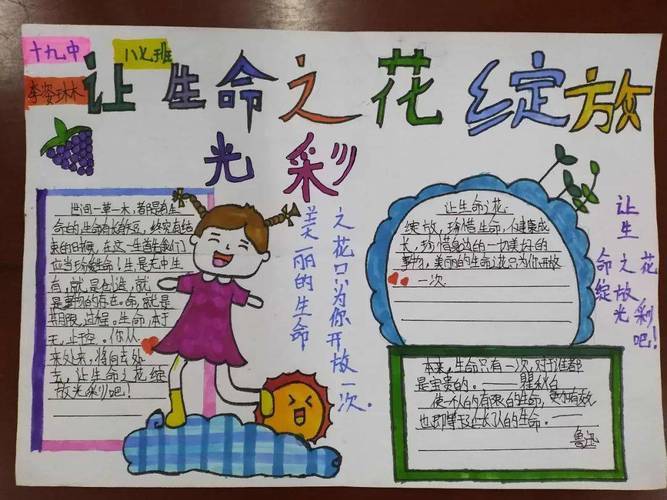 十九中
八七班
李姿琳
让生命之花绽放
光彩
世间一草一木,都是有生
命的.生命有长有短,终究有结
束的时候,在这一生 我们
应当珍惜生命!生是无中生
有,就是创造,就
是事物的存在.命,就是
期限,过程.生命,本于
无,止于空.你从
本处来,将向去处
去,让生命之花绽
放光彩吧!
美丽的生命
之花只为你开放一次.
让生命之花
绽放,珍惜生命,健康成
长,珍惜身边的一切美好的
事物,美丽的生命之花只为你开放
一次.
让生
命之花
绽放
光彩
吧!
本来,生命只有一次,对于谁都
是宝贵的.——瞿秋白
使一人的有限的生命,更加有效,
也即等于让长人的生命.——
鲁迅